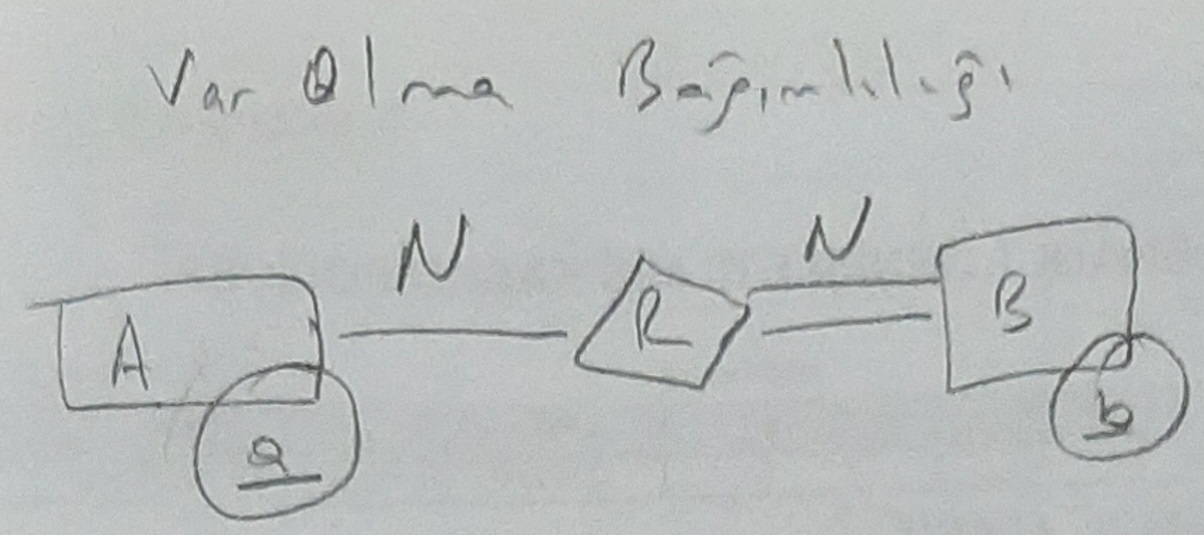 Var Olma Bağımlılığı
N N
A R B
a b